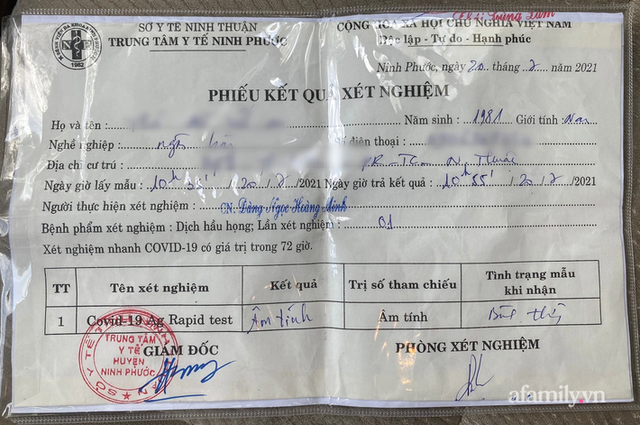 SỞ Y TẾ NINH THUẬN
TRUNG TÂM Y TẾ NINH PHƯỚC
CỘNG HÒA XÃ HỘI CHỦ NGHĨA VIỆT NAM
Độc lập - Tự do - Hạnh phúc
Ninh Phước, ngày 20 tháng 2 năm 2021
1982
PHIẾU KẾT QUẢ XÉT NGHIỆM
Họ và tên : Năm sinh : 1981 Giới tính : Nam
Nghề nghiệp : điện thoại :
Địa chỉ cư trú :
Ngày giờ lấy mẫu : 10h 35' 20/2/2021 Ngày giờ trả kết quả : 10h 55' 20/2/2021
Người thực hiện xét nghiệm : CN: Đàng Ngọc Hoàng Minh
Bệnh phẩm xét nghiệm : Dịch hầu họng; Lần xét nghiệm : 01
Xét nghiệm nhanh COVID-19 có giá trị trong 72 giờ.
TT Tên xét nghiệm Kết quả Trị số tham chiếu Tình trạng mẫu khi nhận
1 Covid-19 Ag Rapid test Âm tính Âm tính
GIÁM ĐỐC PHÒNG XÉT NGHIỆM
TRUNG TÂM
Y TẾ
HUYỆN
NINH PHƯỚC
afamily.vn